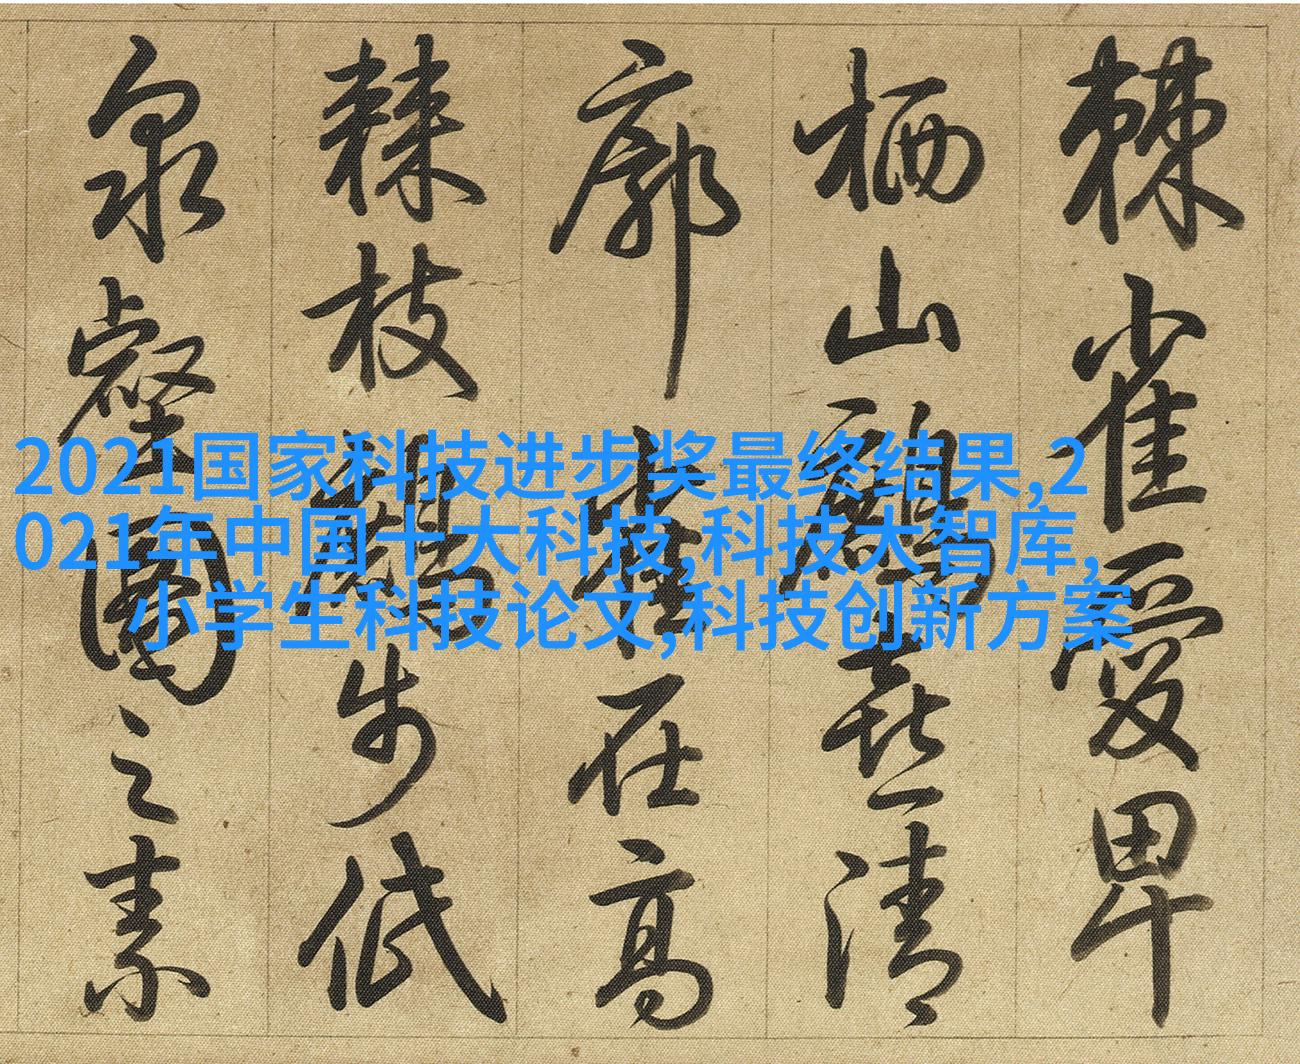 棘雀愛卑
栖山鷓喜清
廓雀在高
棘枝鷓步低
泉壑園之素
2021国家科技进步奖最终结果,2
021年中国十大科技,科技大智库,
小学生科技论文,科技创新方案